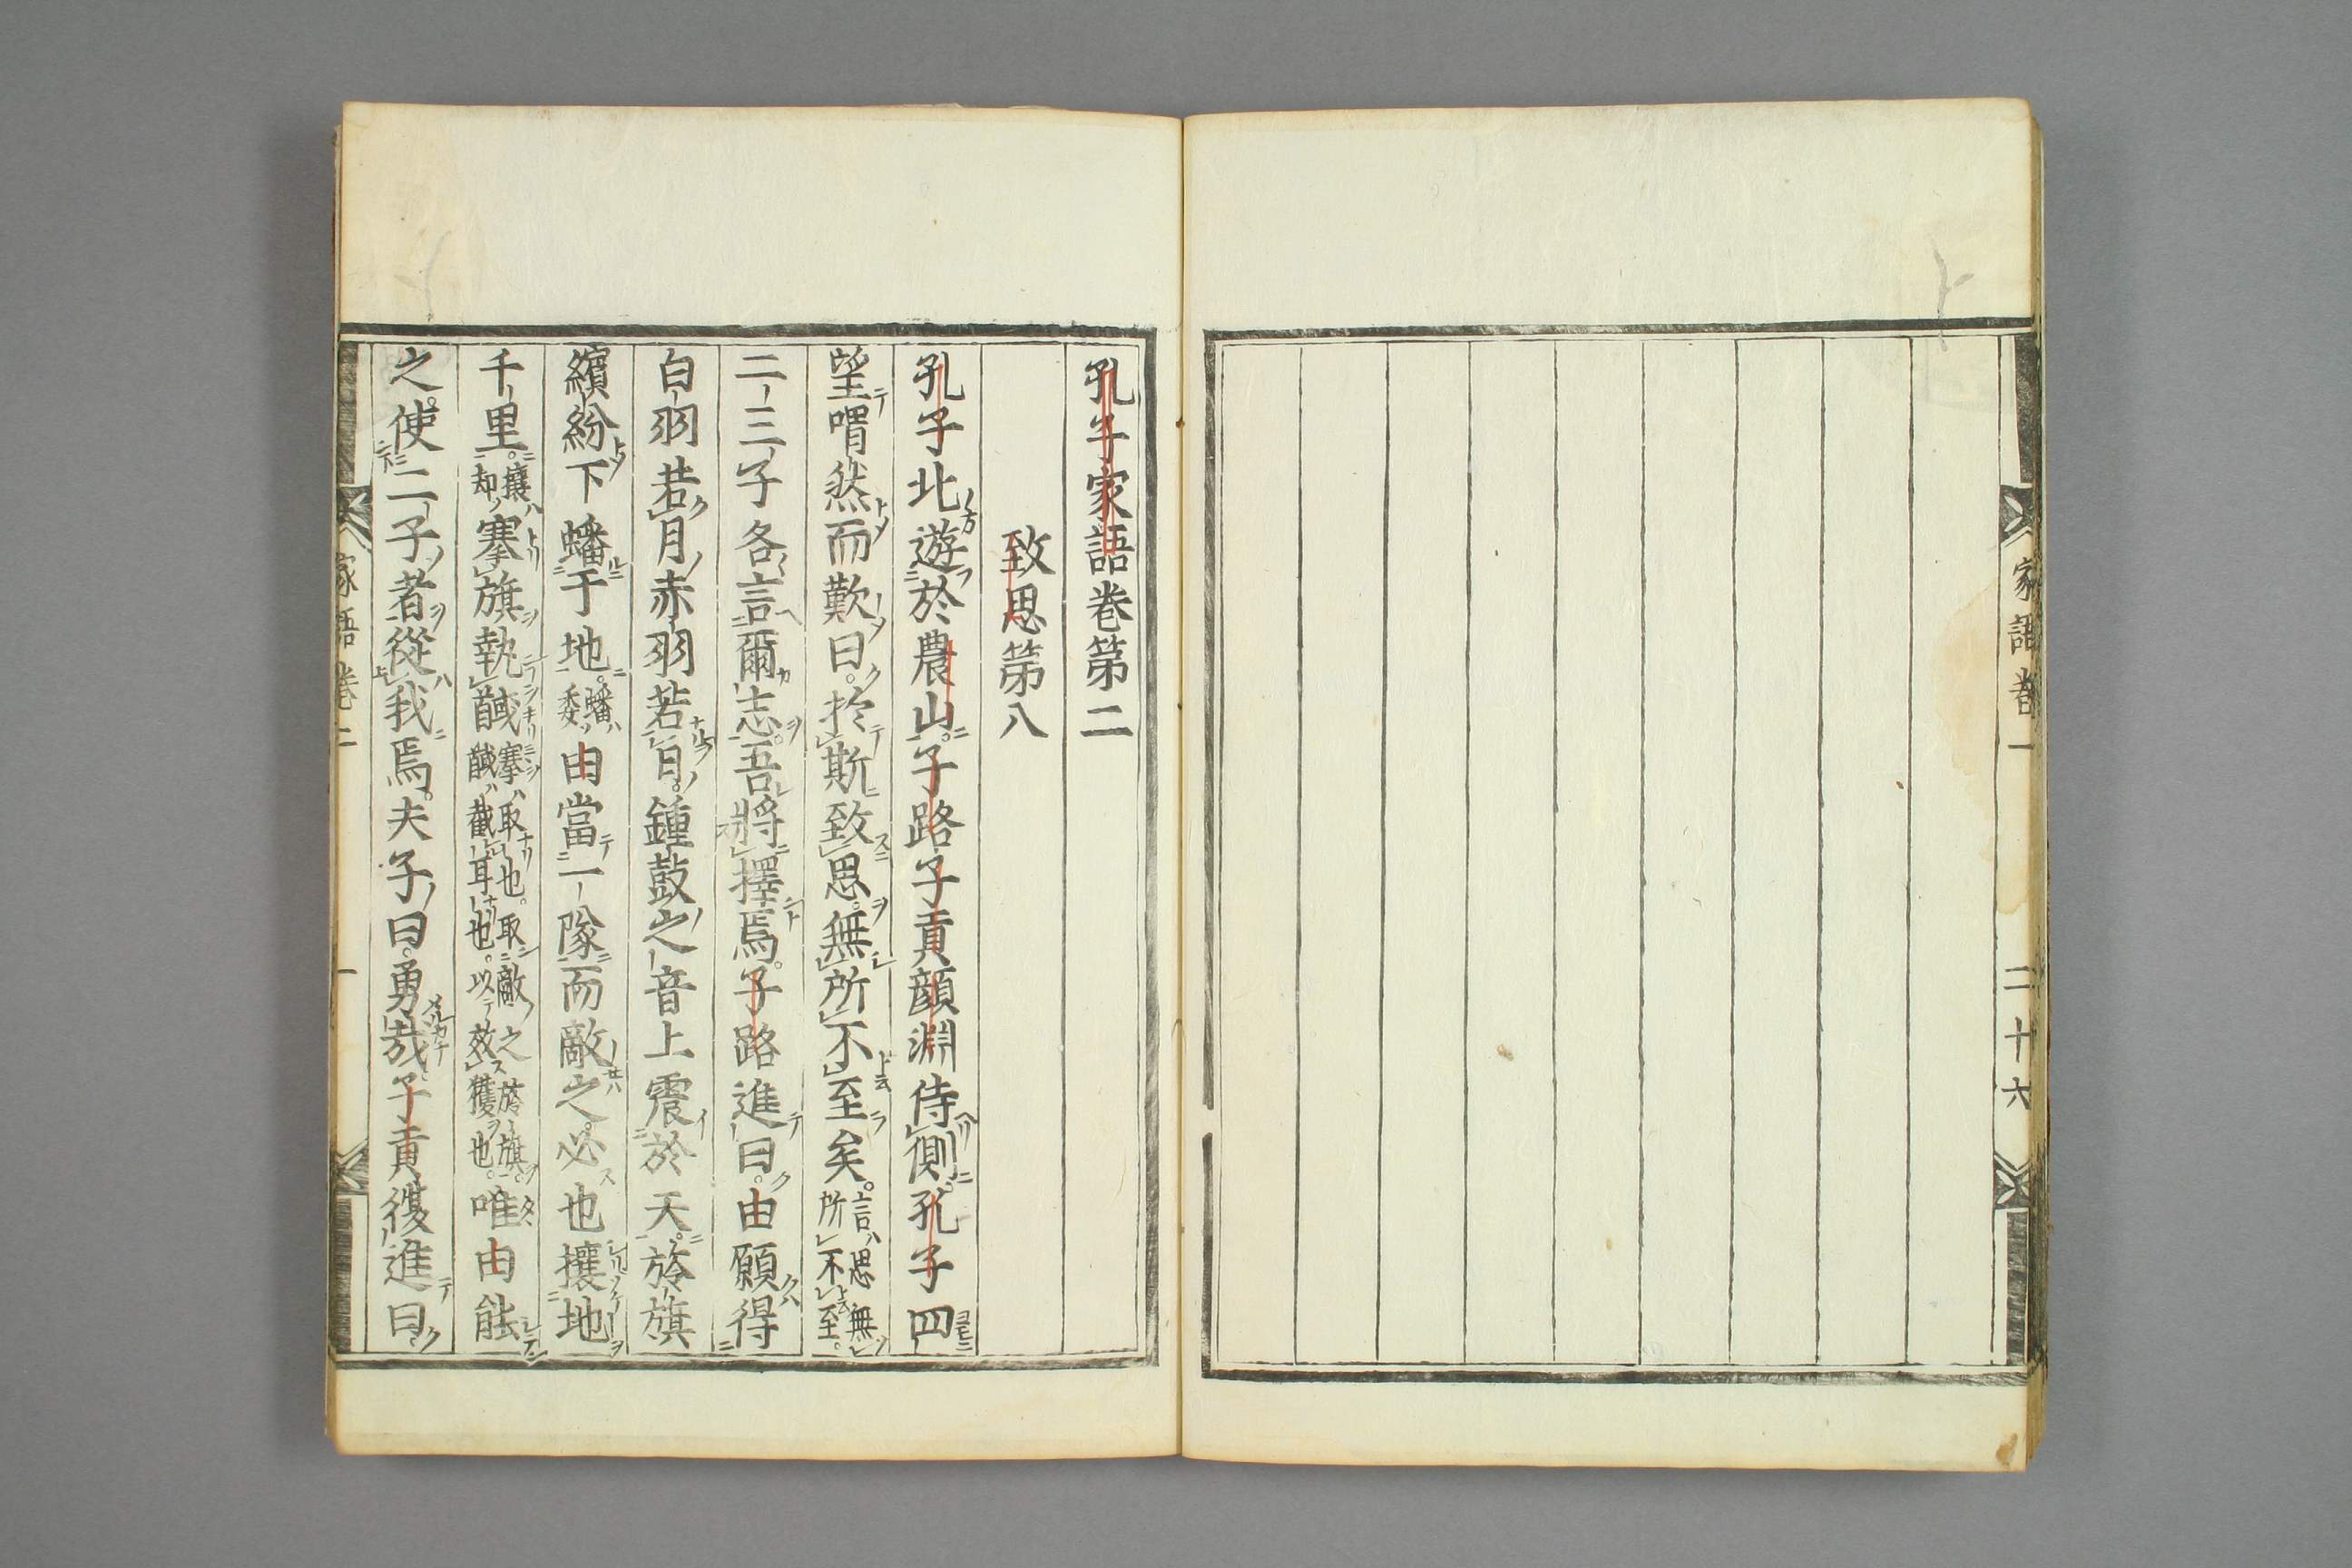 家語卷一
二十六
孔子家語卷第二
致思第八
孔子北遊於農山子路子貢顔淵侍側孔子四
望喟然而歎曰於斯致思無所不至矣言思無所不至
二三子各言爾志吾將擇焉子路進曰由願得
白羽若月赤羽若日鍾鼓之音上震於天旍旗
繽紛下蟠于地蟠委由當一隊而敵之必也攘地
千里攘却搴旗執馘搴取也取敵之旍旗馘截耳也以效獲也唯由能
之使二子者從我焉夫子曰勇哉子貢復進曰
家語卷二
一